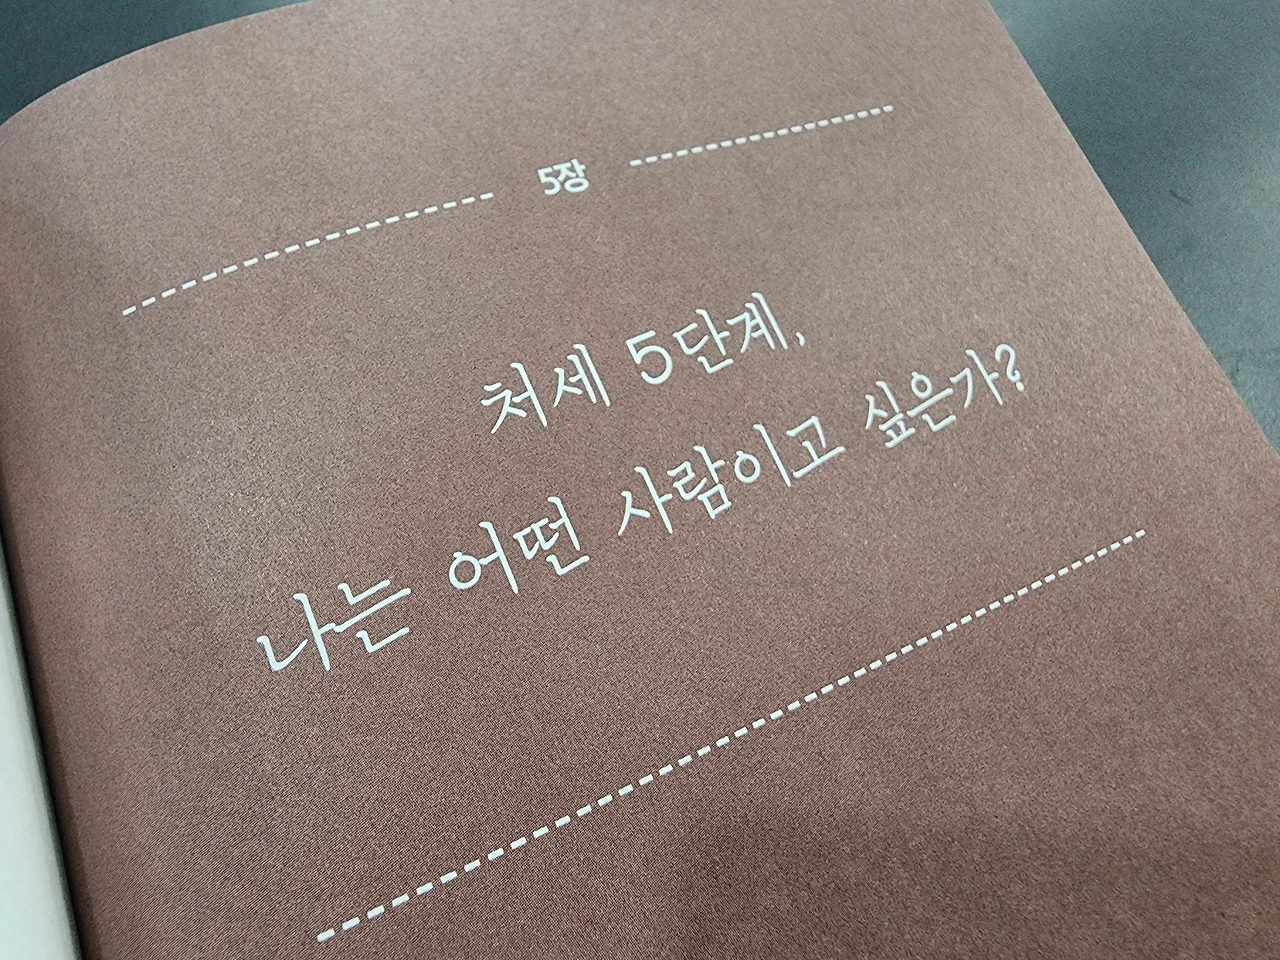 5장
처세 5단계,
나는 어떤 사람이고 싶은가?